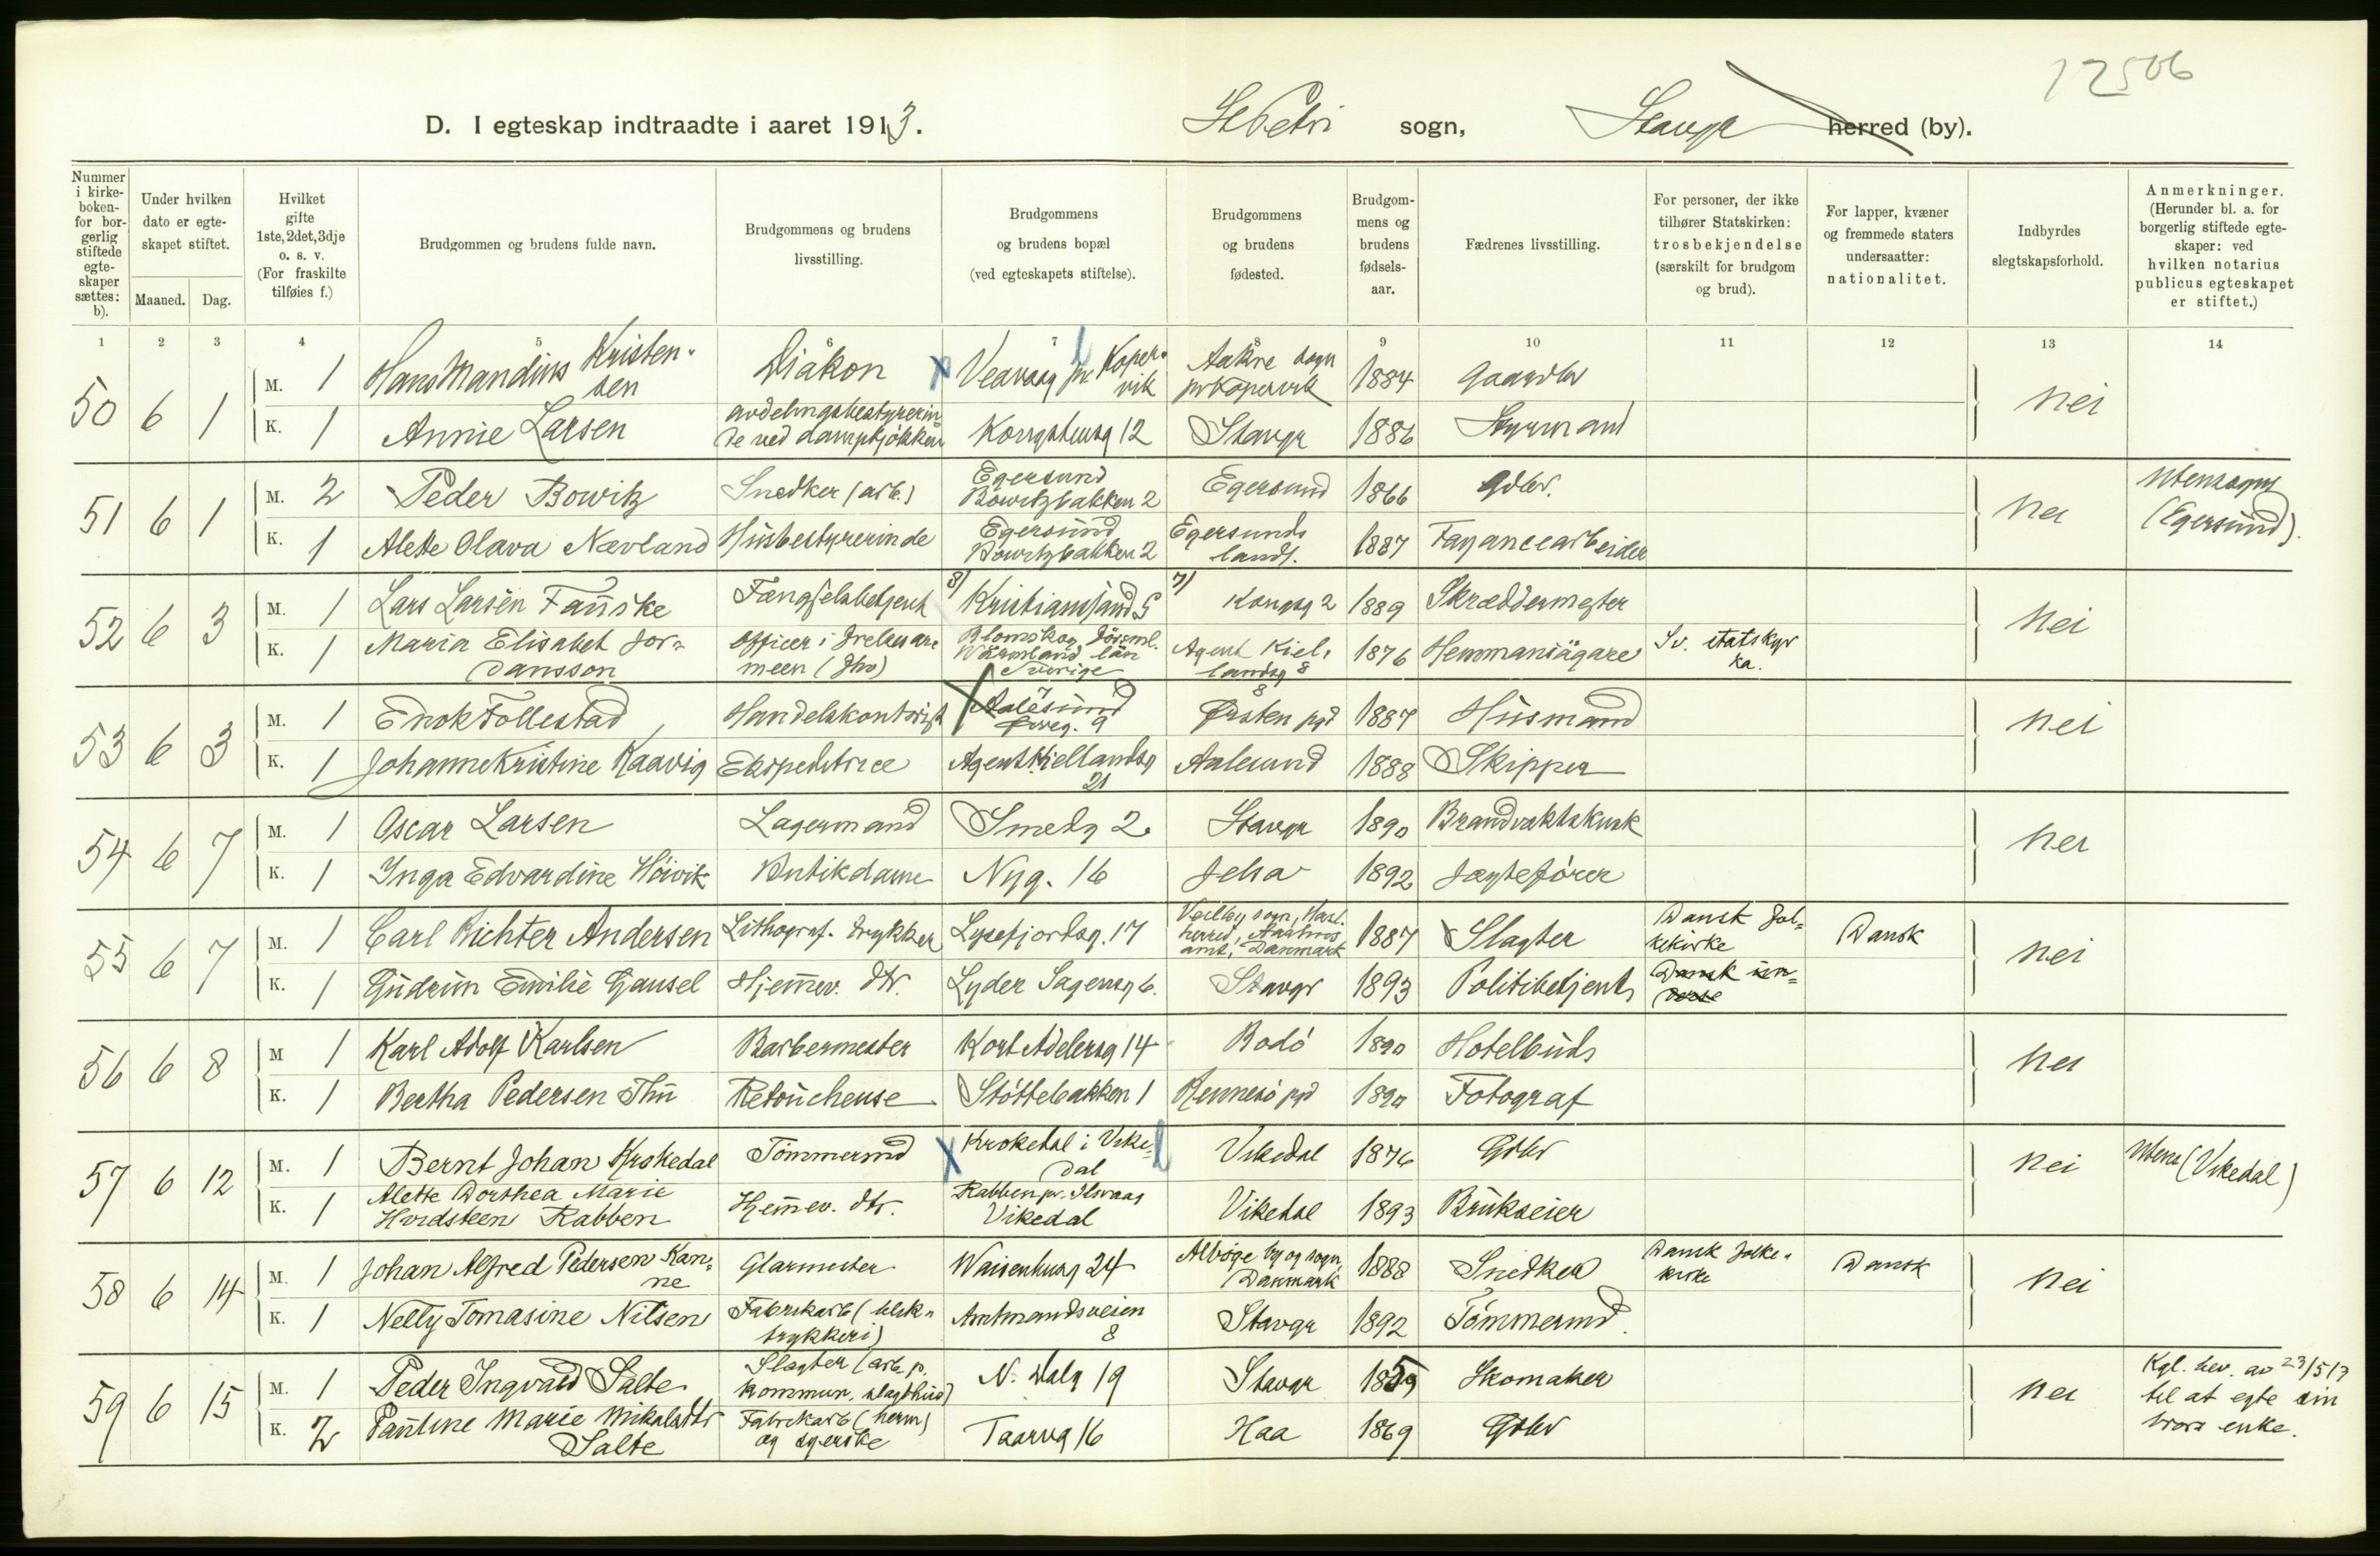 12506
D. I egteskap indtraadte i aaret 1913.
St Petri sogn, Stavgr herred (by).
Nummer i kirke-boken- for bor-gerlig stiftede egte-skaper sættes: b).
Under hvilken dato er egte-skapet stiftet.
Maaned. Dag.
Hvilket gifte 1ste, 2det, 3dje o. s. v. (For fraskilte tilføies f.)
Brudgommen og brudens fulde navn.
Brudgommens og brudens livsstilling.
Brudgommens og brudens bopæl (ved egteskapets stiftelse).
Brudgommens og brudens fødested.
Brudgom-mens og brudens fødsels-aar.
Fædrenes livsstilling.
For personer, der ikke tilhører Statskirken: trosbekjendelse (særskilt for brudgom og brud).
For lapper, kvæner og fremmede staters undersaatter: nationalitet.
Indbyrdes slegtskapsforhold.
Anmerkninger. (Herunder bl. a. for borgerlig stiftede egte-skaper: ved hvilken notarius publicus egteskapet er stiftet.)
1 2 3 4 5 6 7 8 9 10 11 12 13 14
50 6 1 M. 1 Hans Mandius Kristen-sen Diakon Veavaag pr Koper-vik Aakre sogn pr Kopervik 1884 Gaardbr nei
K. 1 Annie Larsen avdelingsbestyrerin-de ved dampkjøkken Kongsteinsg 12 Stavgr 1886 Styrmand
51 6 1 M. 2 Peder Bowitz Snedker (arb.) Egersund Bowitzbakken 2 Egersund 1866 Gdbr. nei Utensogns (Egersund).
K. 1 Alette Olava Nævland Husbestyrerinde Egersund Bowitzbakken 2 Egersunds lands. 1887 Fayancearbeider
52 6 3 M. 1 Lars Larsen Fauske Fængselsbetjent 8) Kristiansand S 7) Kongsg 2 1889 Skræddermester nei
K. 1 Maria Elisabet Jor-dansson Officer i Frelsesar-meen Blomskog Wärmland län Sverige Agent Kiel-landsg 8 1876 Hemmansägare Sv. statskyr ka.
53 6 3 M. 1 Enok Follestad Handelskontorist Aalesund 9 Ørsten pgd 1887 Husmand nei
K. 1 Johanne Kristine Kaavig Ekspeditrice Agent Kiellandsg 21 Aalesund 1888 Skipper
54 6 7 M. 1 Oscar Larsen Lagermand Smedg 2. Stavgr 1890 Brandvaktskusk nei
K. 1 Inga Edvardine Høivik Butikdame Nyg. 16 Jelsa 1892 Jægtefører
55 6 7 M. 1 Carl Richter Andersen Lithograf. trykker Lysefjordsg. 17 Veilby sogn, Hasl. herred, Aarhus amt, Danmark 1887 Slagter Dansk fol-kekirke Dansk nei
K. 1 Gudrun Emilie Gausel Hjemmev. dtr. Lyder Sagensg 6. Stavgr 1893 Politibetjent Dansk un-
56 6 8 M 1 Karl Adolf Karlsen Barbermester Kort Adelersg 14 Bodø 1890 Hotelbud nei
K. 1 Bertha Pedersen Thu Retoucheuse Støttebakken 1 Rennesø pgd 1890 Fotograf
57 6 12 M. 1 Bernt Johan Krokedal Tømmermd Krokedal i Vike-dal Vikedal 1876 Gdbr nei Utens (Vikedal)
K. 1 Alette Dorthea Marie Hordsteen Rabben Hjemmev. dtr. Rabben pr. Ilsvaag Vikedal Vikedal 1893 Brukseier
58 6 14 M. 1 Johan Alfred Pedersen Kan-ne Glarmester Waisenhusg 24 Albøge by og sogn, Danmark 1888 Snedker Dansk folke-kirke Dansk nei
K. 1 Nelly Tomasine Nilsen Fabrikarb (blik-trykkeri) Amtmandsveien 8 Stavgr 1892 Tømmermd.
59 6 15 M. 1 Peder Ingvald Salte Slagter (arb. p. kommun. slagthus) N. Dalg 19 Stavgr 1859 Skomaker nei Kgl. bev. av 23/5 13 til at egte sin brors enke.
K. 2 Pauline Marie Mikalsdtr Salte Fabrikarb (herm) og syerske Taarng 16 Haa 1869 Gdbr